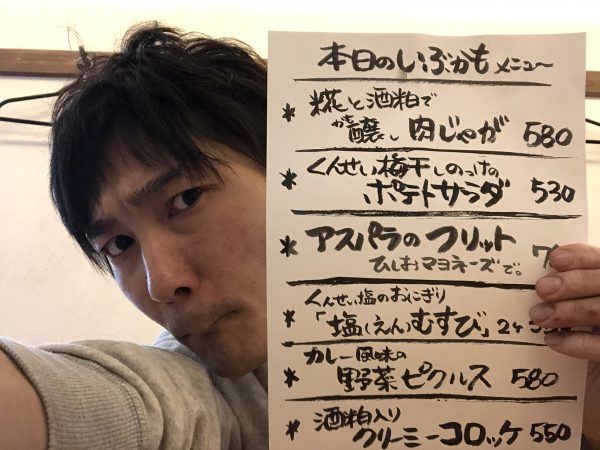 本日のいぶかもメニュー
* 糀と酒粕で
かも醸し 肉じゃが 580
くんせい梅干しのっけの
* ポテトサラダ 530
* アスパラのフリット 7
ひしおマヨネーズで。
くんせい塩のおにぎり
* 「塩(えん)むすび」2ケ
カレー風味の
* 野菜ピクルス 580
* 酒粕入り
クリーミーコロッケ 550